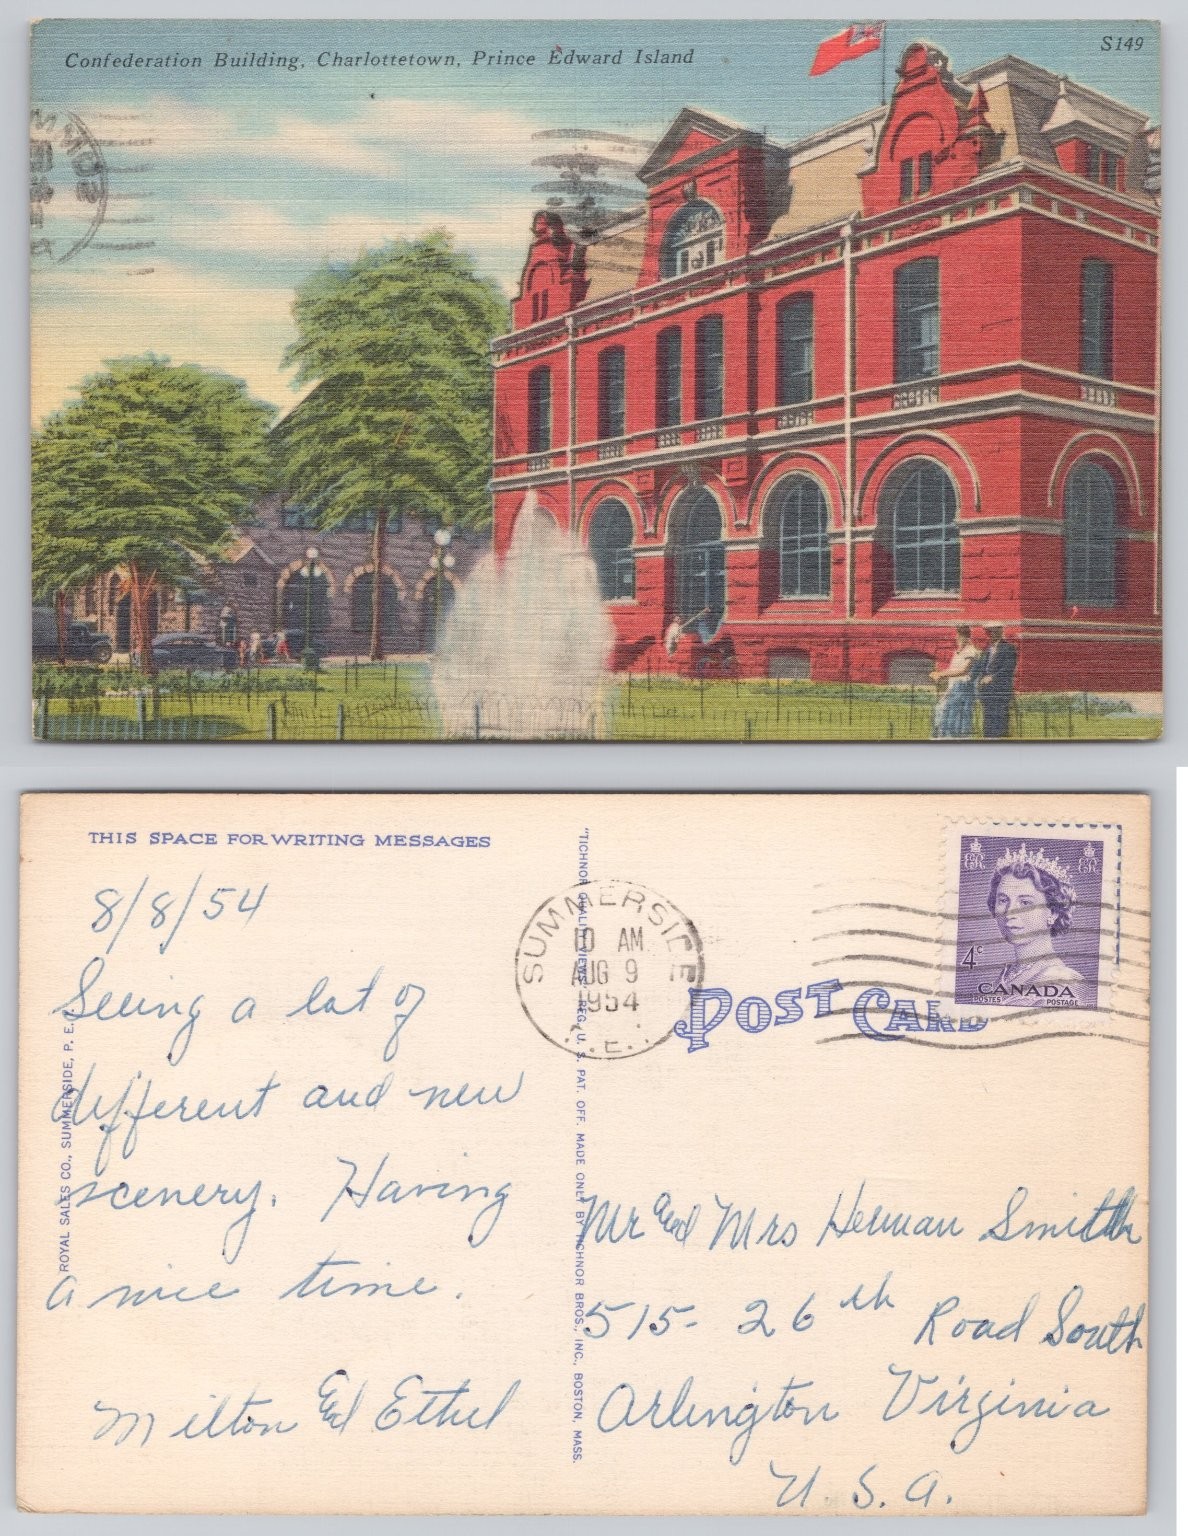 Confederation Building, Charlottetown, Prince Edward Island
S149
THIS SPACE FOR WRITING MESSAGES
8/8/54
Seeing a lot of
different and new
scenery. Having
a nice time.
Milton and Ethel
ROYAL SALES CO., SUMMERSIDE, P. E.
"TICHNOR QUALITY VIEWS," REG. U. S. PAT. OFF. MADE ONLY BY TICHNOR BROS., INC., BOSTON, MASS.
SUMMERSIDE
10 AM
AUG 9
1954
P.E.I.
POST CARD
ER
ER
4c
CANADA
POSTES POSTAGE
Mr and Mrs Herman Smith
515- 26th Road South
Arlington Virginia
U. S. A.